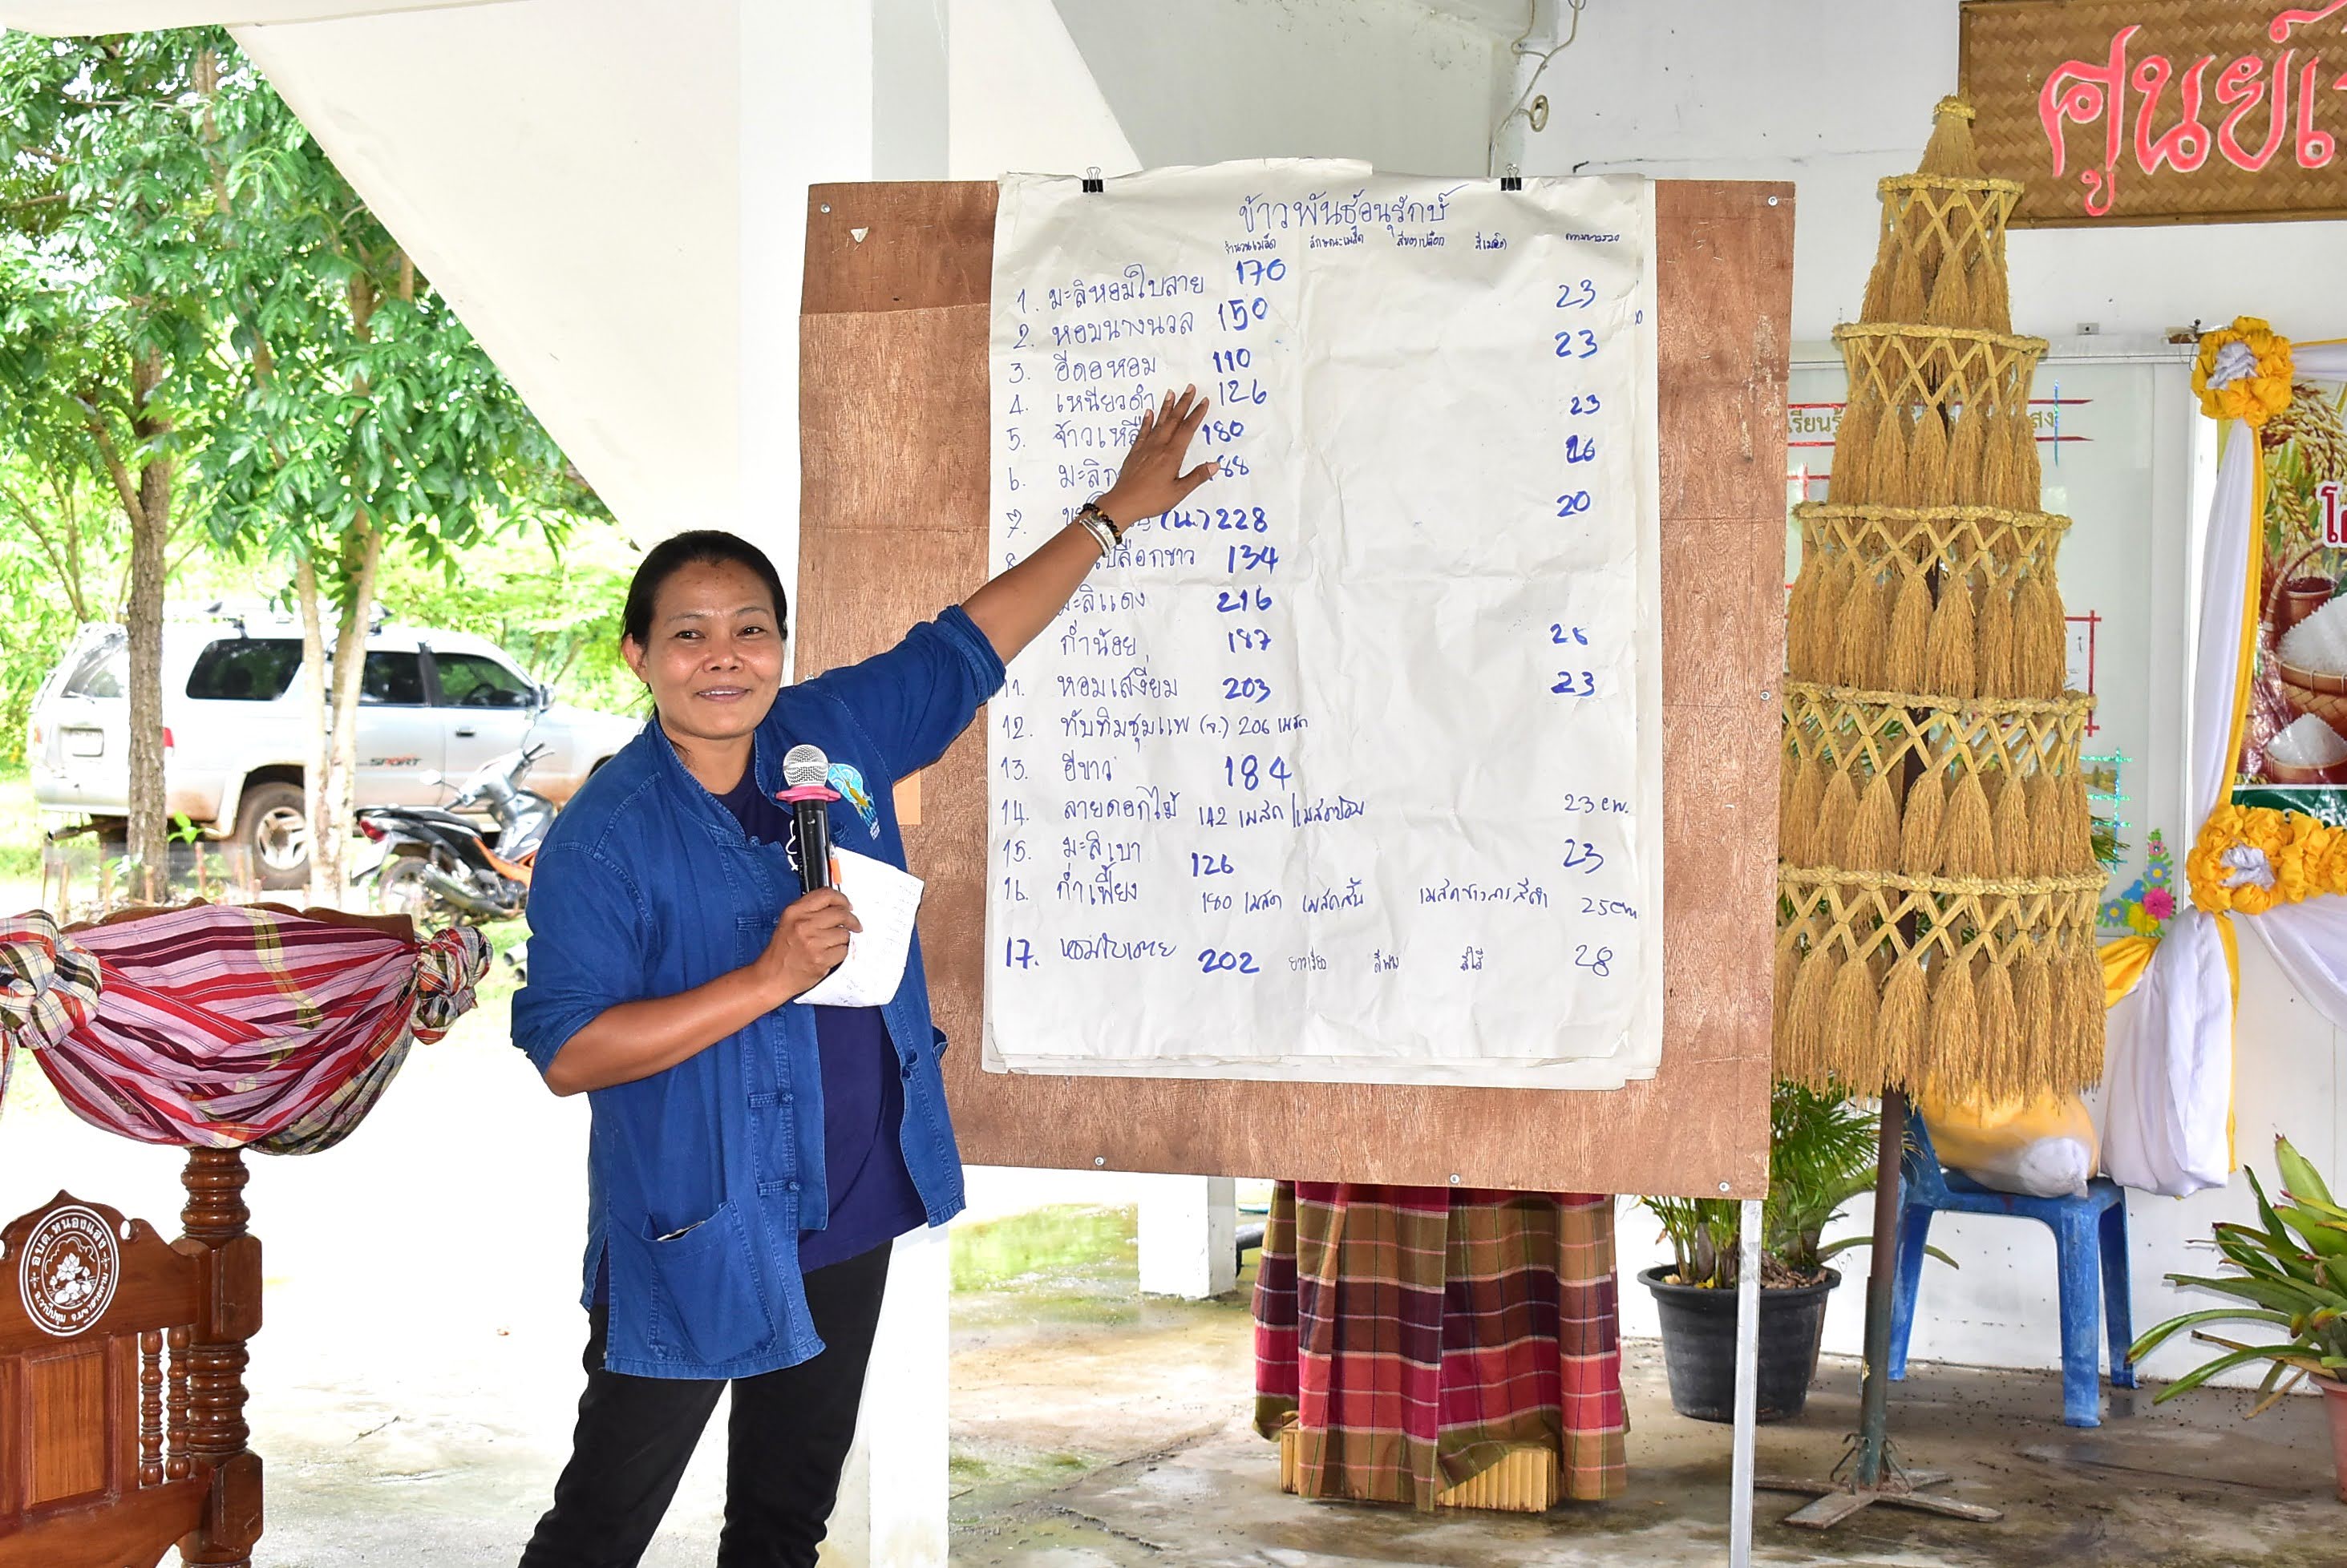 ศูนย์เ
ข้าวพันธุ์อนุรักษ์
จำนวนเมล็ด ลักษณะเมล็ด สีของเปลือก สีเมล็ด
1. มะลิหอมใบลาย 170 23
2. หอมนางนวล 150 23
3. อีดอหอม 110
4. เหนียวดำ 126 23
5. จ้าวเหลือ 180 26
6. มะลิก 88
7. (น.) 228 20
8 เปลือกขาว 134
มะลิแดง 216
ก่ำน้อย 187
11. หอมเสงี่ยม 203 23
12. ทับทิมชุมแพ (จ.) 206 เมล็ด
13. อีขาว 184
14. ลายดอกไม้ 142 เมล็ด 23 cm.
15. มะลิเบา 126 23
16. ก่ำเฟือง 180 เมล็ด เมล็ดสั้น 25cm
17. หอมใบเตย 202 ยาวเรียว สีฟาง 28
เรียนรู้
สง
SPORT
อบต.หนองแสง
อ.วาปีปทุม จ.มหาสารคาม